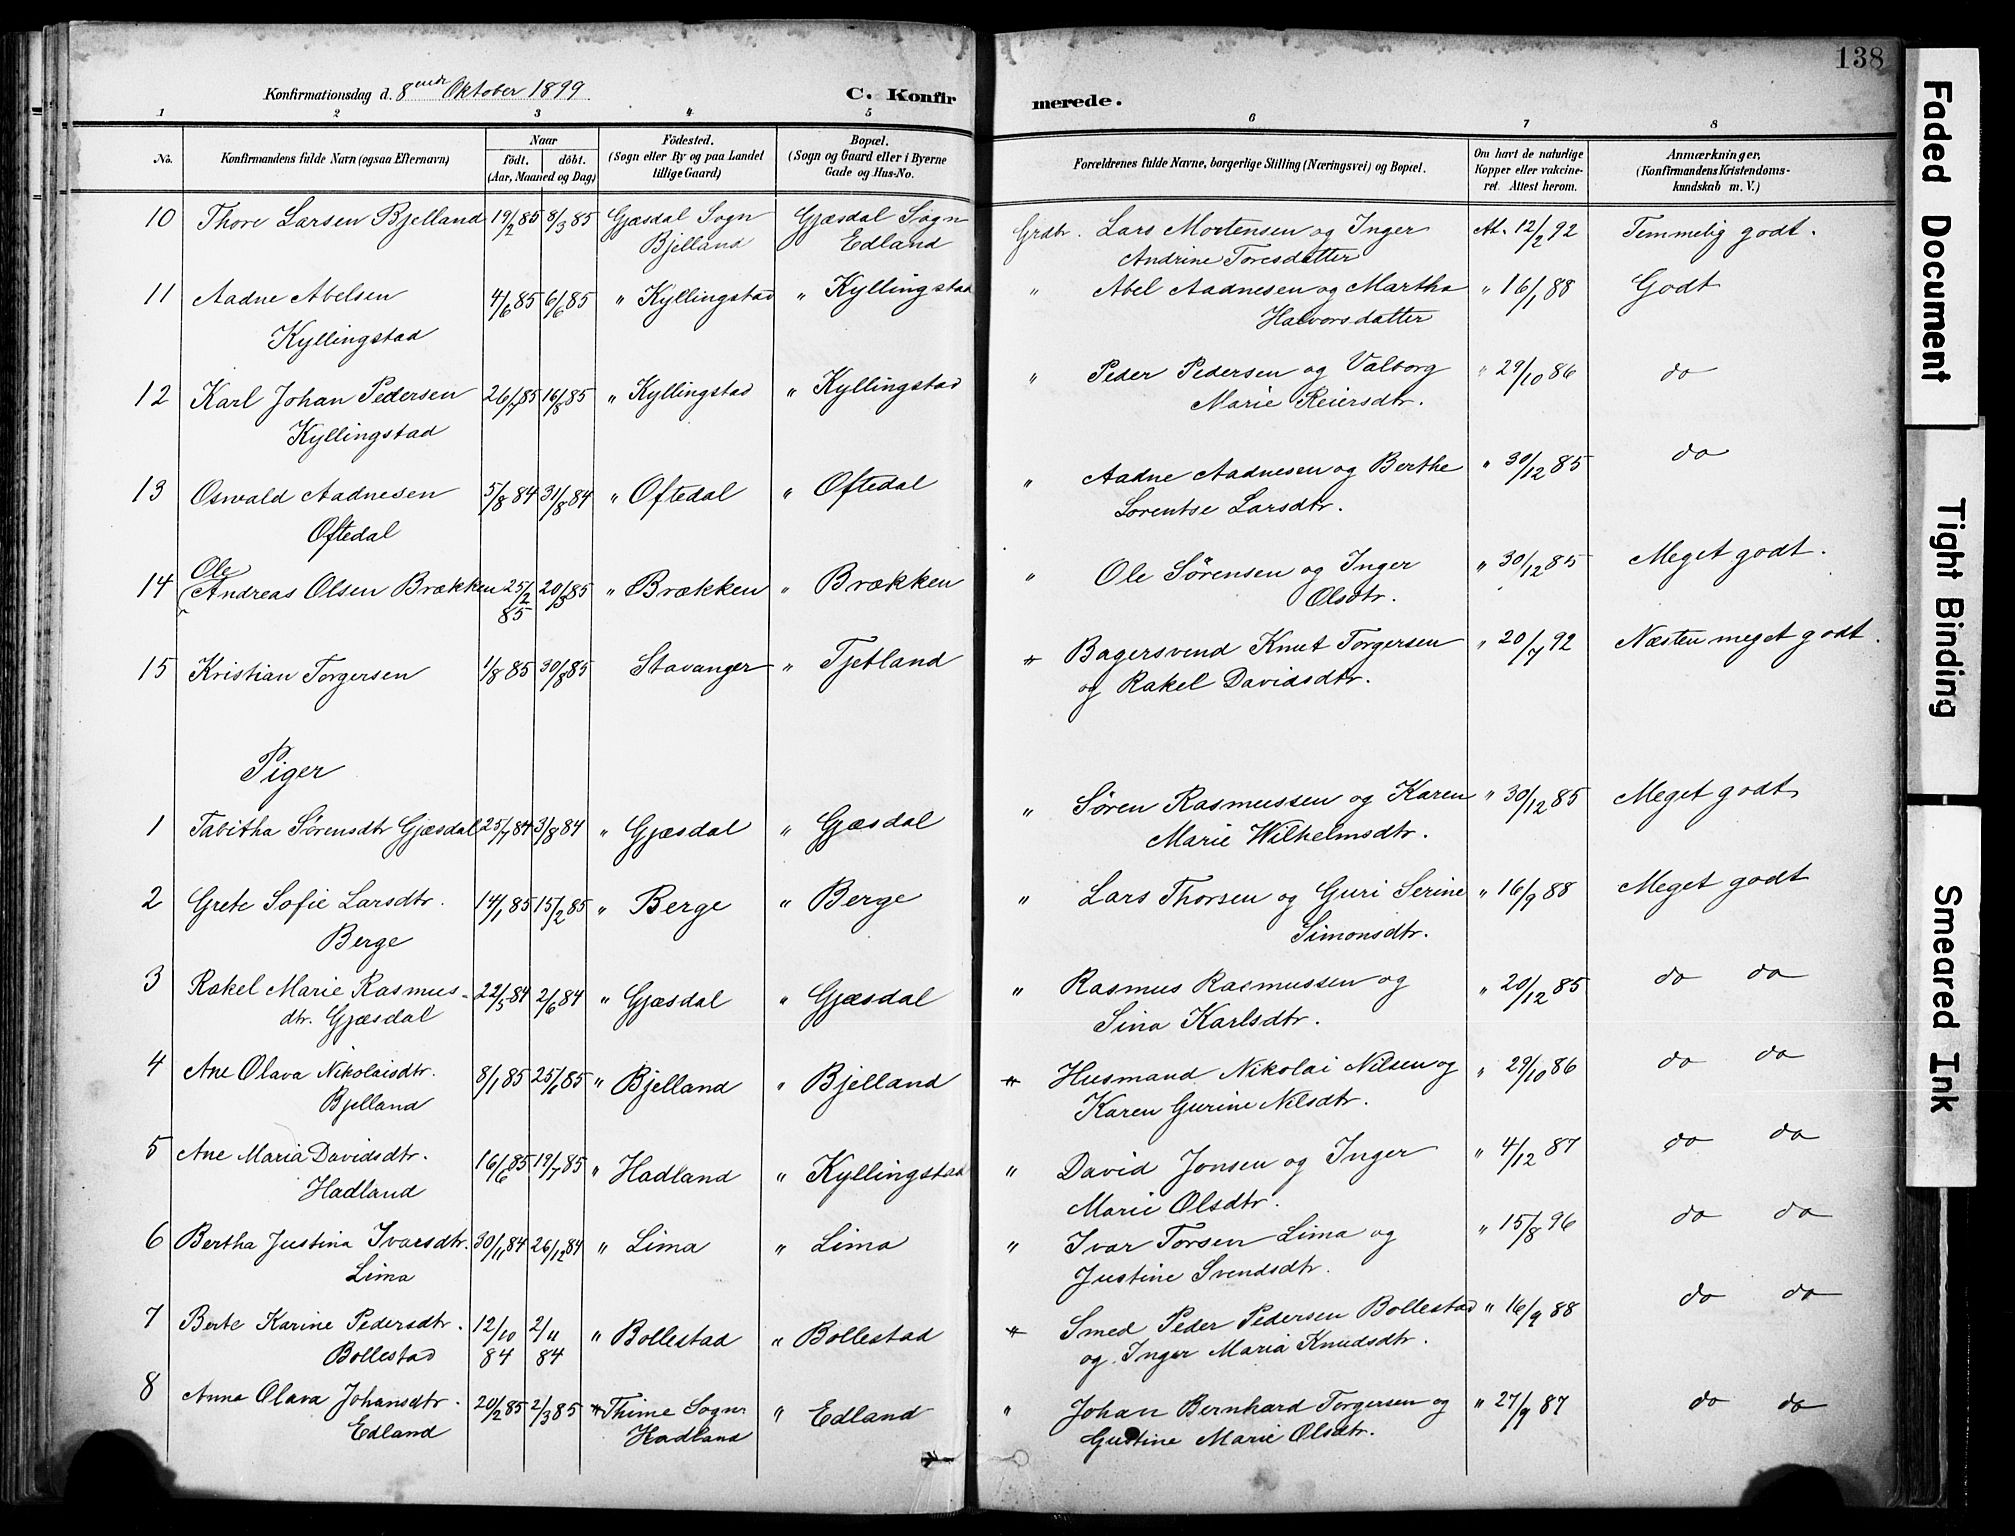 138
Konfirmationsdag d. 8ende Oktober 1899
C. Konfir
merede.
1 2 3 4 5 6 7 8
No.
Konfirmandens fulde Navn (ogsaa Efternavn)
Naar
födt. döbt.
(Aar, Maaned og Dag)
Födested.
(Sogn eller By og paa Landet
tillige Gaard)
Bopæl.
(Sogn og Gaard eller i Byerne
Gade og Hus-No.
Forældrenes fulde Navne, borgerlige Stilling (Næringsvei) og Bopæl.
Om havt de naturlige
Kopper eller vakcine-
ret. Attest herom.
Anmærkninger,
(Konfirmandens Kristendoms-
kundskab m. V.)
10 Thore Larsen Bjelland 19/2 85 8/3 85 Gjæsdal Sogn Gjæsdal Sogn Grdbr. Lars Mortensen og Inger At. 12/2 92 Temmelig godt.
Bjelland Edland Andrine Toresdatter
11 Aadne Abelsen 4/6 85 6/6 85 " Kyllingstad " Kyllingstad " Abel Aadnesen og Martha " 16/1 88 Godt
Kyllingstad Halvorsdatter
12 Karl Johan Pedersen 26/7 85 16/8 85 " Kyllingstad " Kyllingstad " Peder Pedersen og Valborg " 29/10 86 do
Kyllingstad Marie Reiersdtr.
13 Oswald Aadnesen 5/8 84 31/8 84 " Oftedal " Oftedal " Aadne Aadnesen og Berthe " 30/12 85 do
Oftedal Sorentse Larsdtr.
Ole
14 Andreas Olsen Brækken 25/2 20/3 85 " Brækken " Brækken " Ole Sørensen og Inger " 30/12 85 Meget godt.
85 Olsdtr.
15 Kristian Torgersen 1/8 85 30/8 85 Stavanger " Tjetland " Bagersvend Knut Torgersen " 20/7 92 Næsten meget godt.
og Rakel Davidsdtr.
Piger
1 Tabitha Sørensdtr Gjæsdal 25/7 84 3/8 84 " Gjæsdal " Gjæsdal " Søren Rasmussen og Karen " 30/12 85 Meget godt
Marie Wilhelmsdtr.
2 Grete Sofie Larsdtr. 14/1 85 15/2 85 " Berge " Berge " Lars Thorsen og Guri Serine " 16/9 88 Meget godt
Berge Simonsdtr.
3 Rakel Marie Rasmus- 22/5 84 2/6 84 " Gjæsdal " Gjæsdal " Rasmus Rasmussen og " 20/12 85 do do
dtr. Gjæsdal Sina Karlsdtr.
4 Ane Olava Nikolaisdtr. 8/1 85 25/1 85 " Bjelland " Bjelland " Husmand Nikolai Nilsen og " 29/10 86 do do
Bjelland Karen Gurine Nilsdtr.
5 Ane Maria Davidsdtr. 16/6 85 19/7 85 " Hadland " Kyllingstad " David Jonsen og Inger " 4/12 87 do do
Hadland Marie Olsdtr.
6 Bertha Justina Ivarsdtr. 30/11 84 26/12 84 " Lima " Lima " Ivar Torsen Lima og " 15/8 96 do do
Lima Justine Svendsdtr.
7 Berte Karine Pedersdtr. 12/10 2/11 " Bollestad " Bollestad " Smed Peder Pedersen Bollestad " 16/9 88 do do
Bollestad 84 84 og Inger Maria Knudsdtr.
8 Anna Olava Johansdtr. 20/2 85 2/3 85 Thime Sogn " Edland " Johan Bernhard Torgersen og " 27/9 87 do do
Edland Hadland Gustine Marie Olsdtr.
Faded Document
Tight Binding
Smeared Ink